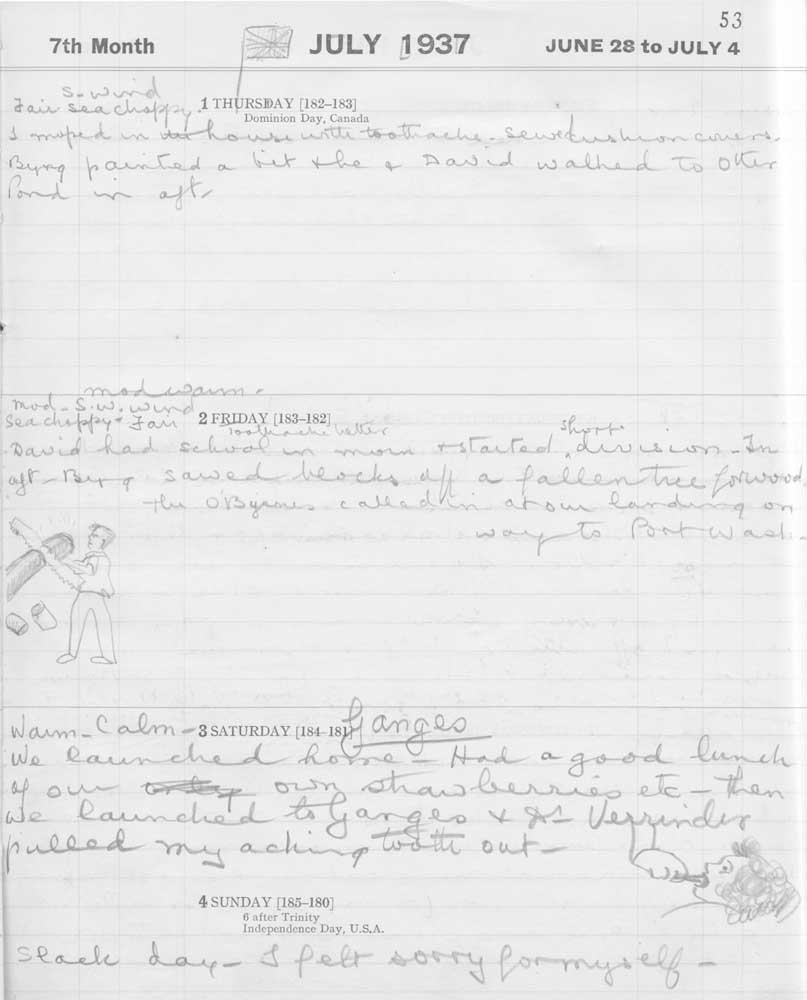 53
7th Month JULY 1937 JUNE 28 to JULY 4
S. wind
Fair sea choppy.
1 THURSDAY [182–183]
Dominion Day, Canada
I moped in house with toothache. Sewed cushion covers.
Byng painted a bit & he & David walked to Otter
Pond in aft.
mod warm.
Mod - S.W. wind
Sea choppy - Fair
2 FRIDAY [183–182]
Toothache better
David had school in morn & started short division - In
aft - Byng sawed blocks off a fallen tree for wood.
The O'Byrnes called in at our landing on
way to Port Wash.
Warm - Calm - 3 SATURDAY [184–181] Ganges
We launched home - Had a good lunch
of our own strawberries etc - Then
we launched to Ganges & Dr Verrinder
pulled my aching tooth out -
4 SUNDAY [185–180]
6 after Trinity
Independence Day, U.S.A.
Slack day - I felt sorry for myself -